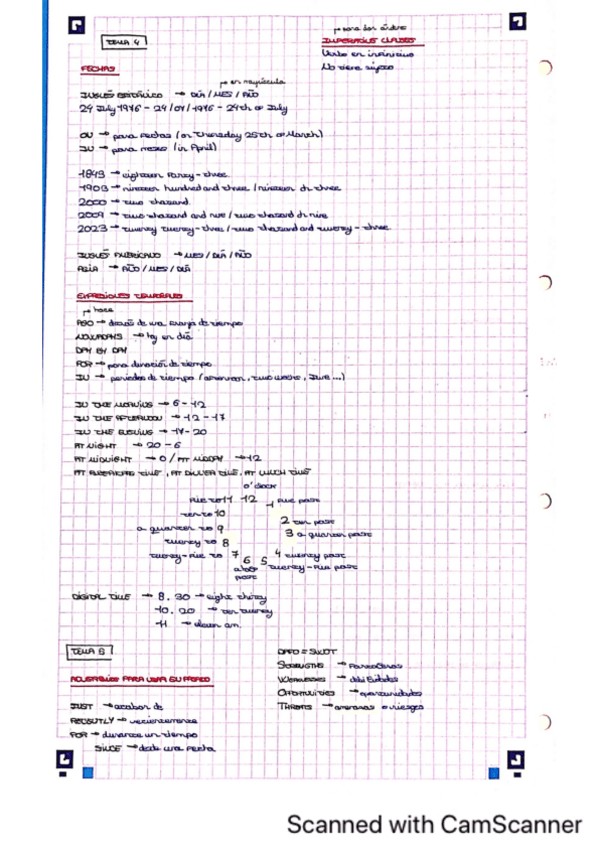 TEMA 4
→ para dar órdenes
IMPERATIVE CLAUSES
Verbo en infinitivo
No tiene sujeto
FECHAS
→ en mayúscula
INGLÉS BRITÁNICO → DÍA / MES / AÑO
24 July 1976 - 24/07/1976 - 24th of July
ON → para fechas (on Thursday 25th of March)
IN → para meses (in April)
1843 → eighteen forty-three
1903 → nineteen hundred and three / nineteen oh three
2000 → two thousand
2009 → two thousand and nine / two thousand oh nine
2023 → twenty twenty-three / two thousand and twenty-three
INGLÉS AMERICANO → MES / DÍA / AÑO
ASIA → AÑO / MES / DÍA
EXPRESIONES TEMPORALES
→ hace
AGO → después de una franja de tiempo
NOWADAYS → hoy en día
DAY BY DAY
FOR → para duración de tiempo
IN → periodos de tiempo (afternoon, two weeks, June...)
IN THE MORNING → 6-12
IN THE AFTERNOON → 12-17
IN THE EVENING → 17-20
AT NIGHT → 20-6
AT MIDNIGHT → 0 / AT MIDDAY → 12
AT BREAKFAST TIME, AT DINNER TIME, AT LUNCH TIME
o'clock
five to 11 12 1 five past
ten to 10 2 ten past
a quarter to 9 3 a quarter past
twenty to 8 4 twenty past
twenty-five to 7 6 5 twenty-five past
half
past
DIGITAL TIME → 8.30 → eight thirty
10.20 → ten twenty
11 → eleven am.
TEMA 5
DAFO = SWOT
STRENGTHS → fortalezas
ADVERBIOS PARA USAR EN PASADO
WEAKNESSES → debilidades
OPPORTUNITIES → oportunidades
JUST → acabar de
THREATS → amenazas o riesgos
RECENTLY → recientemente
FOR → durante un tiempo
SINCE → desde una fecha
Scanned with CamScanner